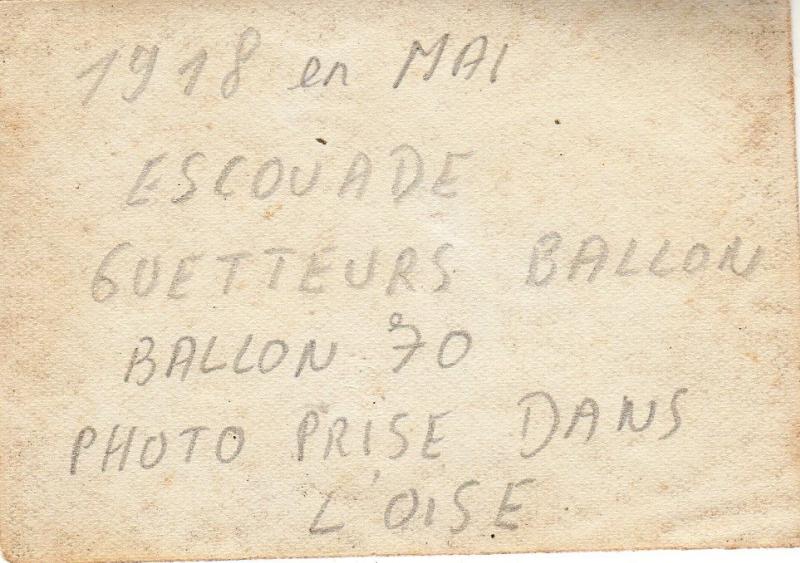 1918 en MAI
ESCOUADE
GUETTEURS BALLON
BALLON 70
PHOTO PRISE DANS
L'OISE